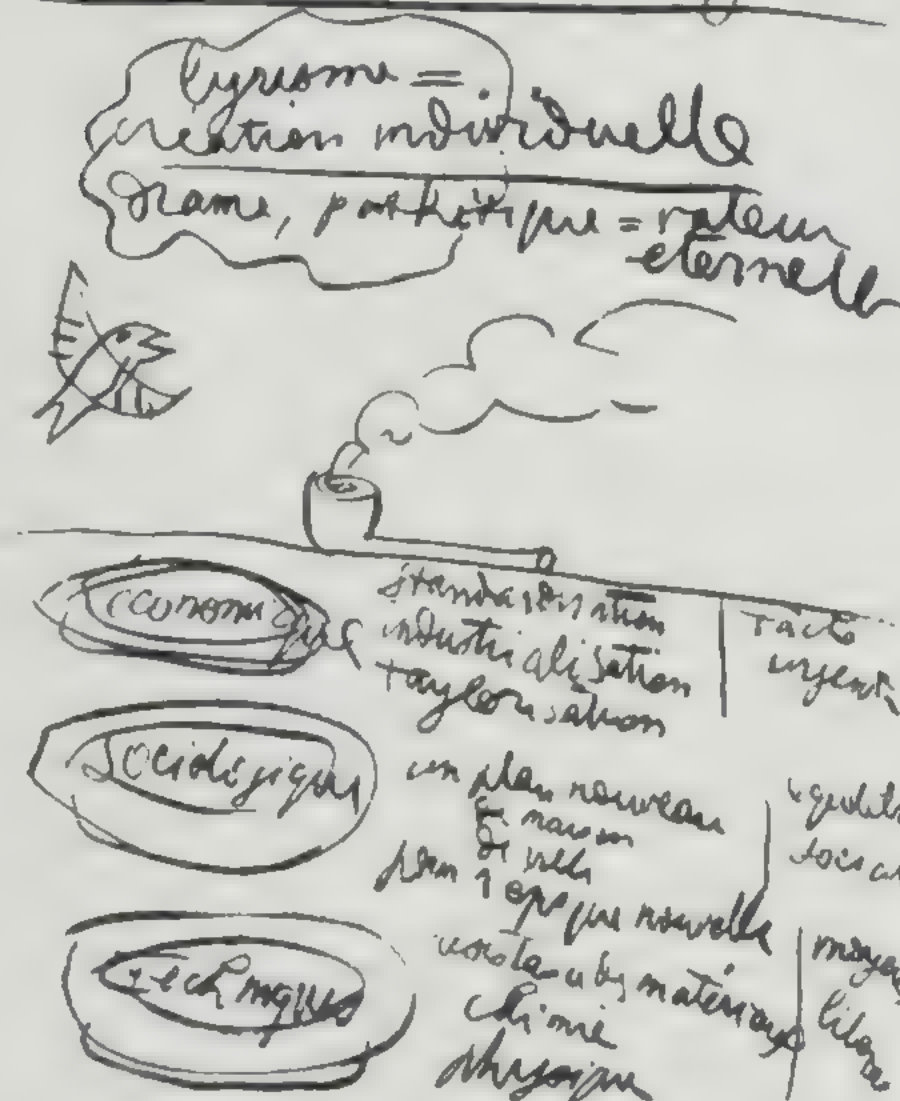 lyrisme =
création individuelle
Drame, pathétique = valeur
éternelle
économique
standardisation
industrialisation
taylorisation
facts
urgent
Sociologique
un plan nouveau
de maison
de ville
pour 1 époque nouvelle
équilib
social
Technique
matériaux
chimie
physique
moyens
libér